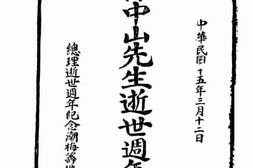 中華民国十五年三月十二日
中山先生逝世週年
總理逝世週年紀念潮梅